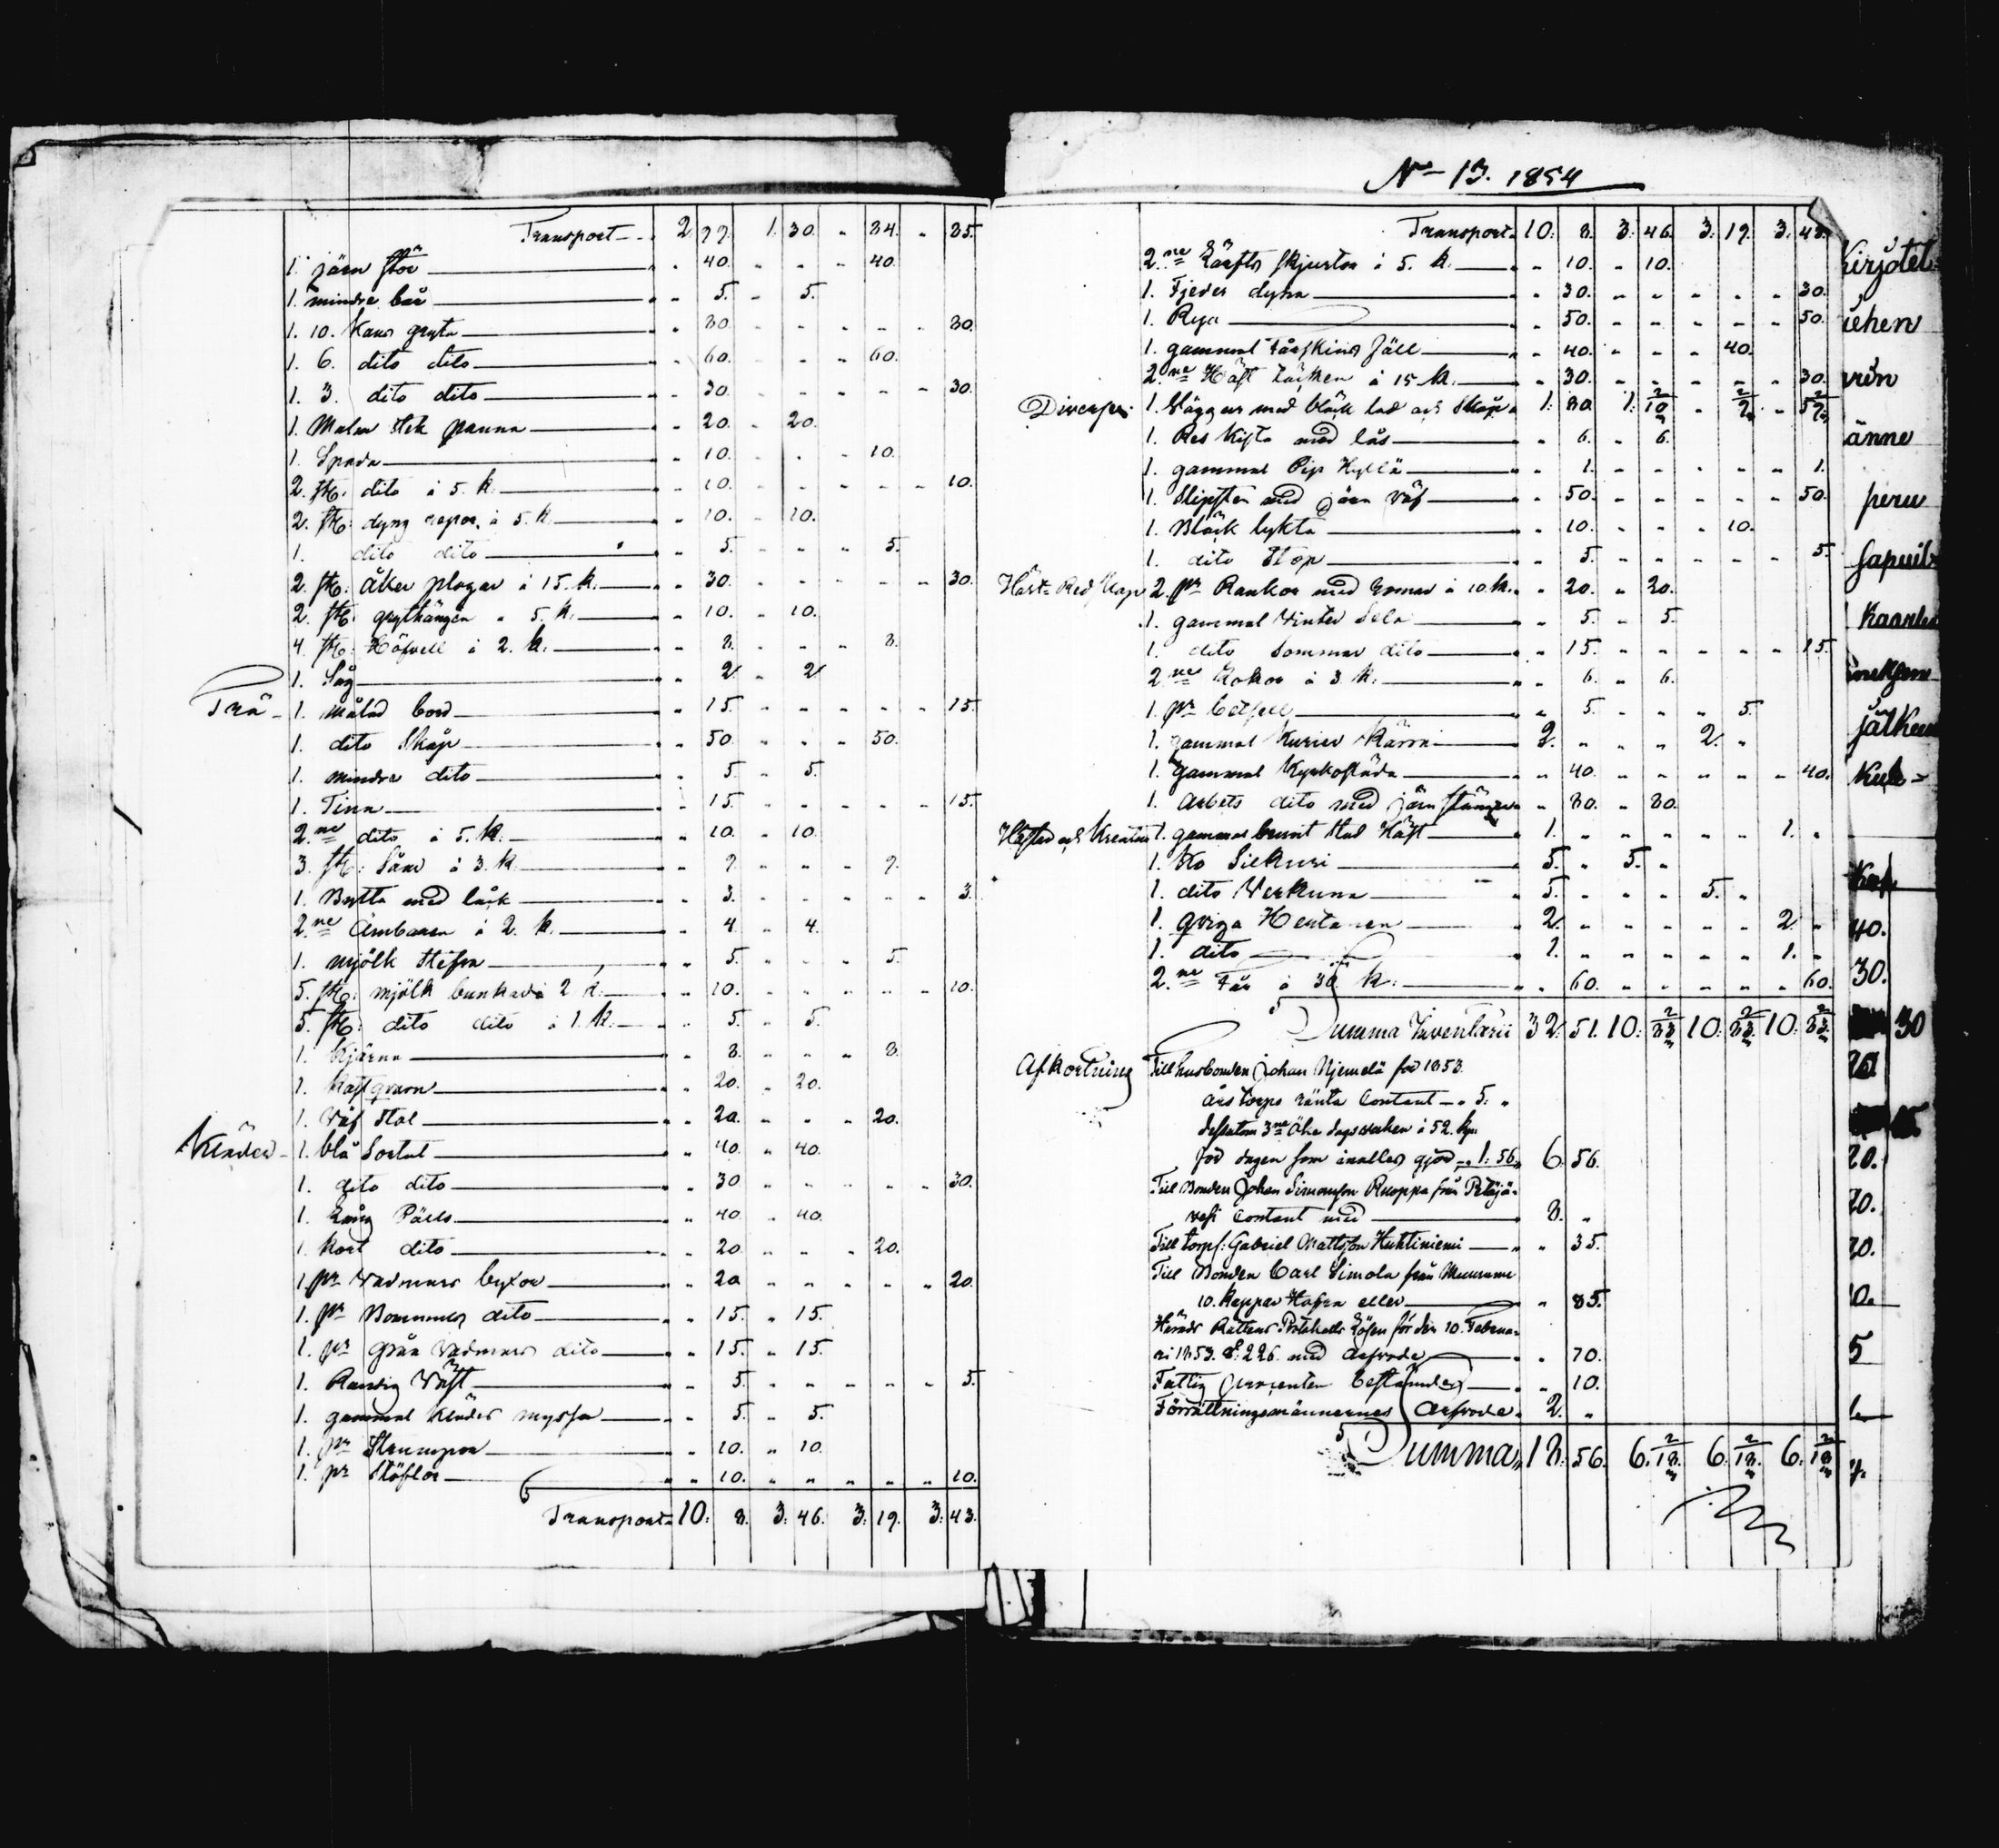 Transport 2 99. 1. 30. " 34. " 35.
1. järn stör " 40. " " " 40.
1. mindre bår " 5. " 5.
1. 10. Kans gryta " 30. " " " " " 30.
1. 6. dito dito " 60. " " " 60.
1. 3. dito dito " 30. " " " " " 30.
1. stek panna " 20. " 20.
1. Spada " 10. " " " 10.
2. st: dito à 5. k. " 10. " " " " " 10.
2. st: dyng à 5. k. " 10. " 10.
1. dito dito " 5. " " " 5.
2. st: åker plogar à 15. k. " 30. " " " " " 30.
2. st: grythängen " 5. k. " 10. " 10.
4. st: à 2. k. " 8. " " " 8.
1. Såg " 2 " 2
Trä 1. målad bord " 15. " " " " " 15.
1. dito Skåp " 50. " " " 50.
1. mindre dito " 5. " 5.
1. Tina " 15. " " " " " 15.
2ne dito à 5. k. " 10. " 10.
3. st: Såar à 3. k. " 9. " " " 9.
1. Bytta med låck " 3. " " " " " 3.
2ne Ämbaren à 2. k. " 4. " 4.
1. mjölk " 5. " " " 5.
5. st: mjölk bunkar à 2 k. " 10. " " " " " 10.
5. st: dito dito à 1. k. " 5. " 5.
1. Kjärna " 8. " " " 8.
1. Kaffqvarn " 20. " 20.
1. Väf Stol " 20. " " " 20.
Kläder 1. blå Sortut " 40. " 40.
1. dito dito " 30 " " " " " 30.
1. Lång Päls " 40. " 40.
1. kort dito " 20. " " " 20.
1. pr Vadmars byxor " 20 " " " " " 20.
1. pr Bommulls dito " 15. " 15.
1. pr gråa Vadmars dito " 15. " 15.
1. Randig Väst " 5. " " " " " 5.
1. gammal Klädes myssa " 5. " 5.
1. pr Strumpor " 10. " 10.
1. pr Stöflor " 10. " " " " " 10.
Transport 10: 8. 3: 46. 3: 19. 3: 43.
No 13. 1854
Transport 10: 8. 3: 46. 3: 19. 3: 43.
2ne Lärfts skjortor à 5. k. " 10. " 10.
1. Fjeder dyna " 30. " " " " " 30.
1. Rya " 50. " " " " " 50.
1. gammal Fårskins fäll " 40. " " " 40.
2ne Häst täcken à 15 k. " 30. " " " " " 30.
Diverse: 1. Vägg ur med bläck lod och Skåp 1: 80.
1. Res Kista med lås " 6. " 6.
1. gammal Pip Hylla " 1. " " " " " 1.
1. Slipsten med järn väf " 50. " " " " " 50.
1. Bläck lykta " 10. " " " 10.
1. dito Stop " 5. " " " " " 5.
Häst Redskap 2. pr Rankor med à 10 k. " 20. " 20.
1. gammal Vinter Sela " 5. " 5.
1. dito Sommar dito " 15. " " " " " 15.
2ne à 3. k. " 6. " 6.
1. pr betsell " 5. " " " 5.
1. gammal Kurier Kärra 2. " " " 2. "
1. gammal Kyrkosläda " 40. " " " " " 40.
1. arbets dito med järn " 80. " 80.
Hästar och Kreatur 1. gammal brunt Häst 1. " " " " " 1. "
1. Ko Sirkuri 5. " 5. "
1. dito Verkuna 5. " " " 5. "
1. qviga Hertanen 2. " " " " " 2 "
1. dito 1. " " " " " 1. "
2ne Får à 30. k. " 60. " " " " " 60
Summa Inventarii 32: 51. 10: 10: 10:
Afkortning Till husbonden Johan Njemelä för 1853.
års torps ränta Contant " 5: "
dessutom 3ne Öke dagsverken à 52. kp.
för dagen som innalles gjör 1: 56. 6. 56.
Till Bonden Johan Simonson Ruoppa från Petäjä-
vesi Contant med 8. "
Till torp: Gabriel Mattsson Huhtiniemi " 35.
Till Bonden Carl Simola från Muurame
10. kappar Hafra eller " 85.
Härads Rättens Protokolls Lösen för den 10. Februa-
ri 1853. §: 226. med Arfvode " 70.
Fattig procenten bestämdes " 10.
Förrättningsmännernes Arfvode 2. "
Summa 18. 56. 6. 6. 6.
kirjotet
änne
peru
Kaarle
40.
30.
30
20.
5